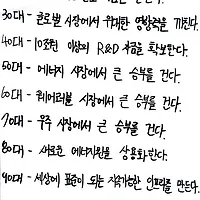 30대 - 글로벌 시장에서 위대한 영향력을 끼친다.
40대 - 10조원 이상의 R&D 자금을 확보한다.
50대 - 에너지 시장에서 큰 승부를 건다.
60대 - 웨어러블 시장에서 큰 승부를 건다.
70대 - 우주 시장에서 큰 승부를 건다.
80대 - 새로운 에너지원을 상용화한다.
90대 - 세상에 표준이 되는 지속가능한 인프라를 만든다.